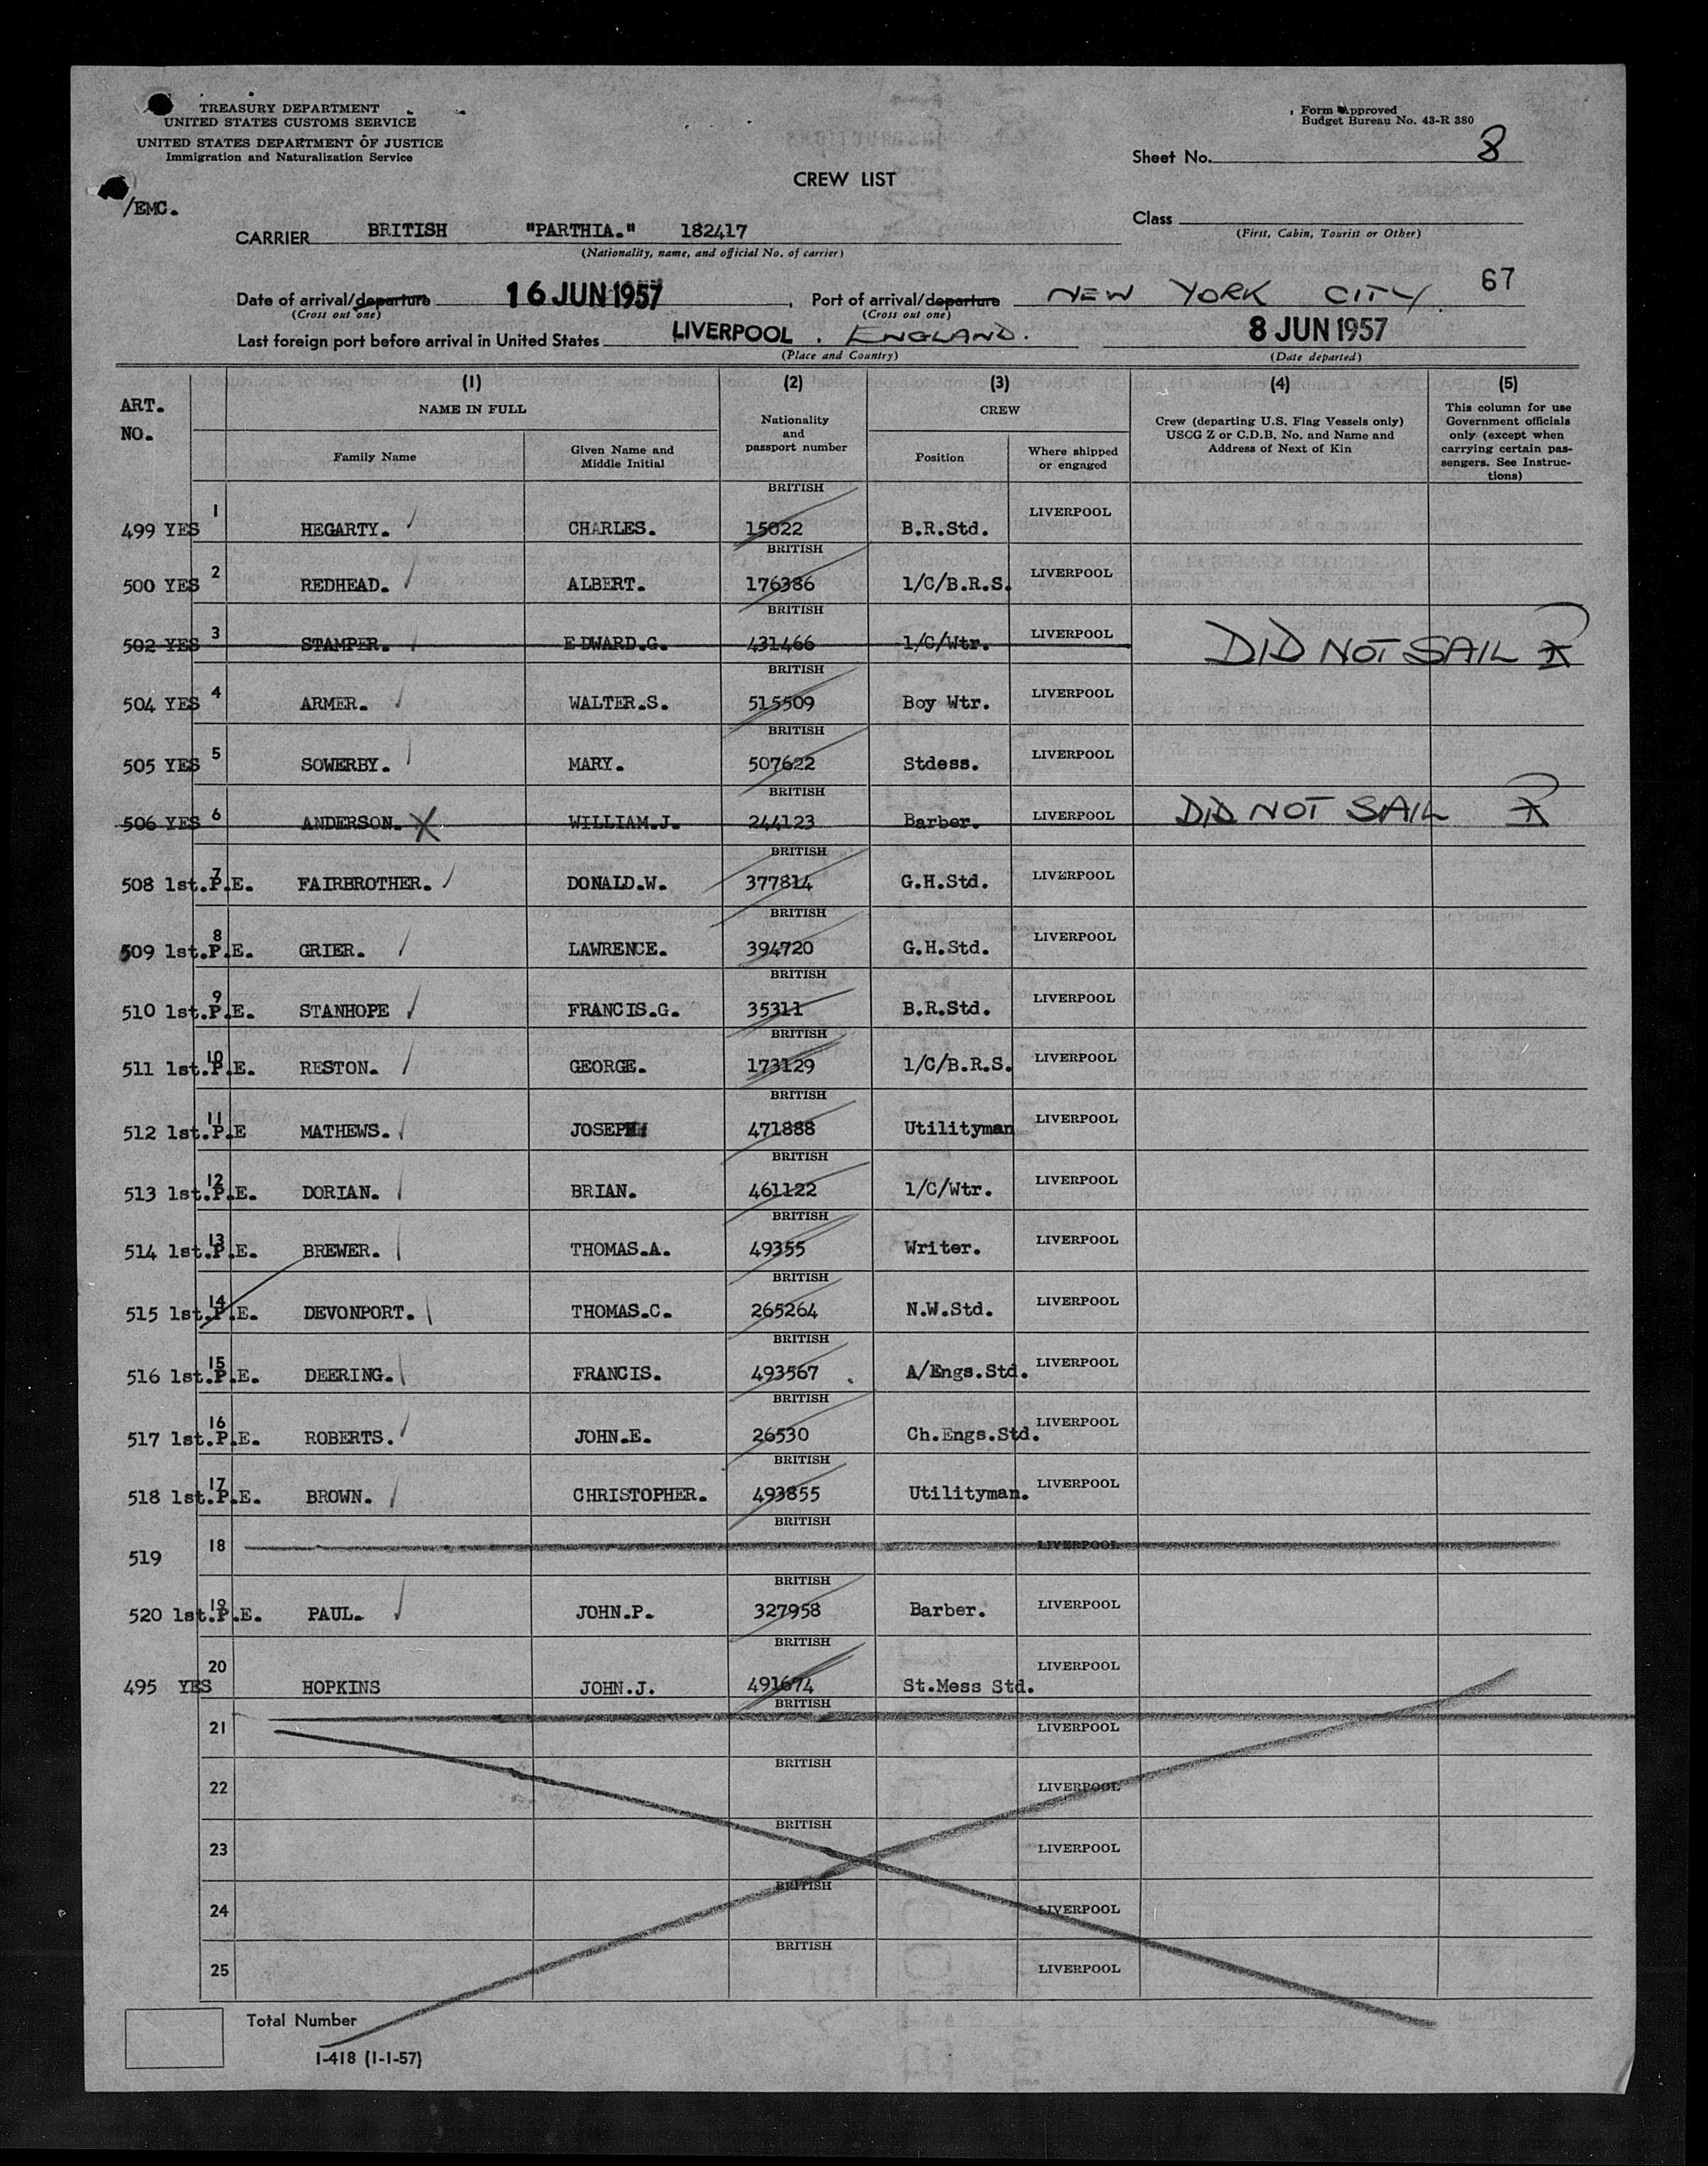 TREASURY DEPARTMENT
UNITED STATES CUSTOMS SERVICE
UNITED STATES DEPARTMENT OF JUSTICE
Immigration and Naturalization Service
Form Approved
Budget Bureau No. 43-R 380
Sheet No. 8
CREW LIST
/EMC.
Class
(First, Cabin, Tourist or Other)
CARRIER BRITISH "PARTHIA." 182417
(Nationality, name, and official No. of carrier)
67
Date of arrival/departure 16 JUN 1957, Port of arrival/departure NEW YORK CITY.
(Cross out one) (Cross out one)
Last foreign port before arrival in United States LIVERPOOL. ENGLAND. 8 JUN 1957
(Place and Country) (Date departed)
ART. NO. (1) (2) (3) (4) (5)
NAME IN FULL Nationality and passport number CREW Crew (departing U.S. Flag Vessels only) USCG Z or C.D.B. No. and Name and Address of Next of Kin This column for use Government officials only (except when carrying certain passengers. See Instructions)
Family Name Given Name and Middle Initial Position Where shipped or engaged
499 YES 1 HEGARTY. CHARLES. BRITISH 15022 B.R.Std. LIVERPOOL
500 YES 2 REDHEAD. ALBERT. BRITISH 176386 1/C/B.R.S. LIVERPOOL
502 YES 3 STAMPER. EDWARD.G. BRITISH 431466 1/C/Wtr. LIVERPOOL DID NOT SAIL
504 YES 4 ARMER. WALTER.S. BRITISH 515509 Boy Wtr. LIVERPOOL
505 YES 5 SOWERBY. MARY. BRITISH 507622 Stdess. LIVERPOOL
506 YES 6 ANDERSON. X WILLIAM.J. BRITISH 244123 Barber. LIVERPOOL DID NOT SAIL
508 1st.P.E. 7 FAIRBROTHER. DONALD.W. BRITISH 377814 G.H.Std. LIVERPOOL
509 1st.P.E. 8 GRIER. LAWRENCE. BRITISH 394720 G.H.Std. LIVERPOOL
510 1st.P.E. 9 STANHOPE FRANCIS.G. BRITISH 35311 B.R.Std. LIVERPOOL
511 1st.P.E. 10 RESTON. GEORGE. BRITISH 173129 1/C/B.R.S. LIVERPOOL
512 1st.P.E 11 MATHEWS. JOSEPH BRITISH 471888 Utilityman LIVERPOOL
513 1st.P.E. 12 DORIAN. BRIAN. BRITISH 461122 1/C/Wtr. LIVERPOOL
514 1st.P.E. 13 BREWER. THOMAS.A. BRITISH 49355 Writer. LIVERPOOL
515 1st.P.E. 14 DEVONPORT. THOMAS.C. BRITISH 265264 N.W.Std. LIVERPOOL
516 1st.P.E. 15 DEERING. FRANCIS. BRITISH 493567 A/Engs.Std. LIVERPOOL
517 1st.P.E. 16 ROBERTS. JOHN.E. BRITISH 26530 Ch.Engs.Std. LIVERPOOL
518 1st.P.E. 17 BROWN. CHRISTOPHER. BRITISH 493855 Utilityman. LIVERPOOL
519 18 BRITISH LIVERPOOL
520 1st.P.E. 19 PAUL. JOHN.P. BRITISH 327958 Barber. LIVERPOOL
495 YES 20 HOPKINS JOHN.J. BRITISH 491674 St.Mess Std. LIVERPOOL
21 BRITISH LIVERPOOL
22 BRITISH LIVERPOOL
23 BRITISH LIVERPOOL
24 BRITISH LIVERPOOL
25 BRITISH LIVERPOOL
Total Number
I-418 (1-1-57)